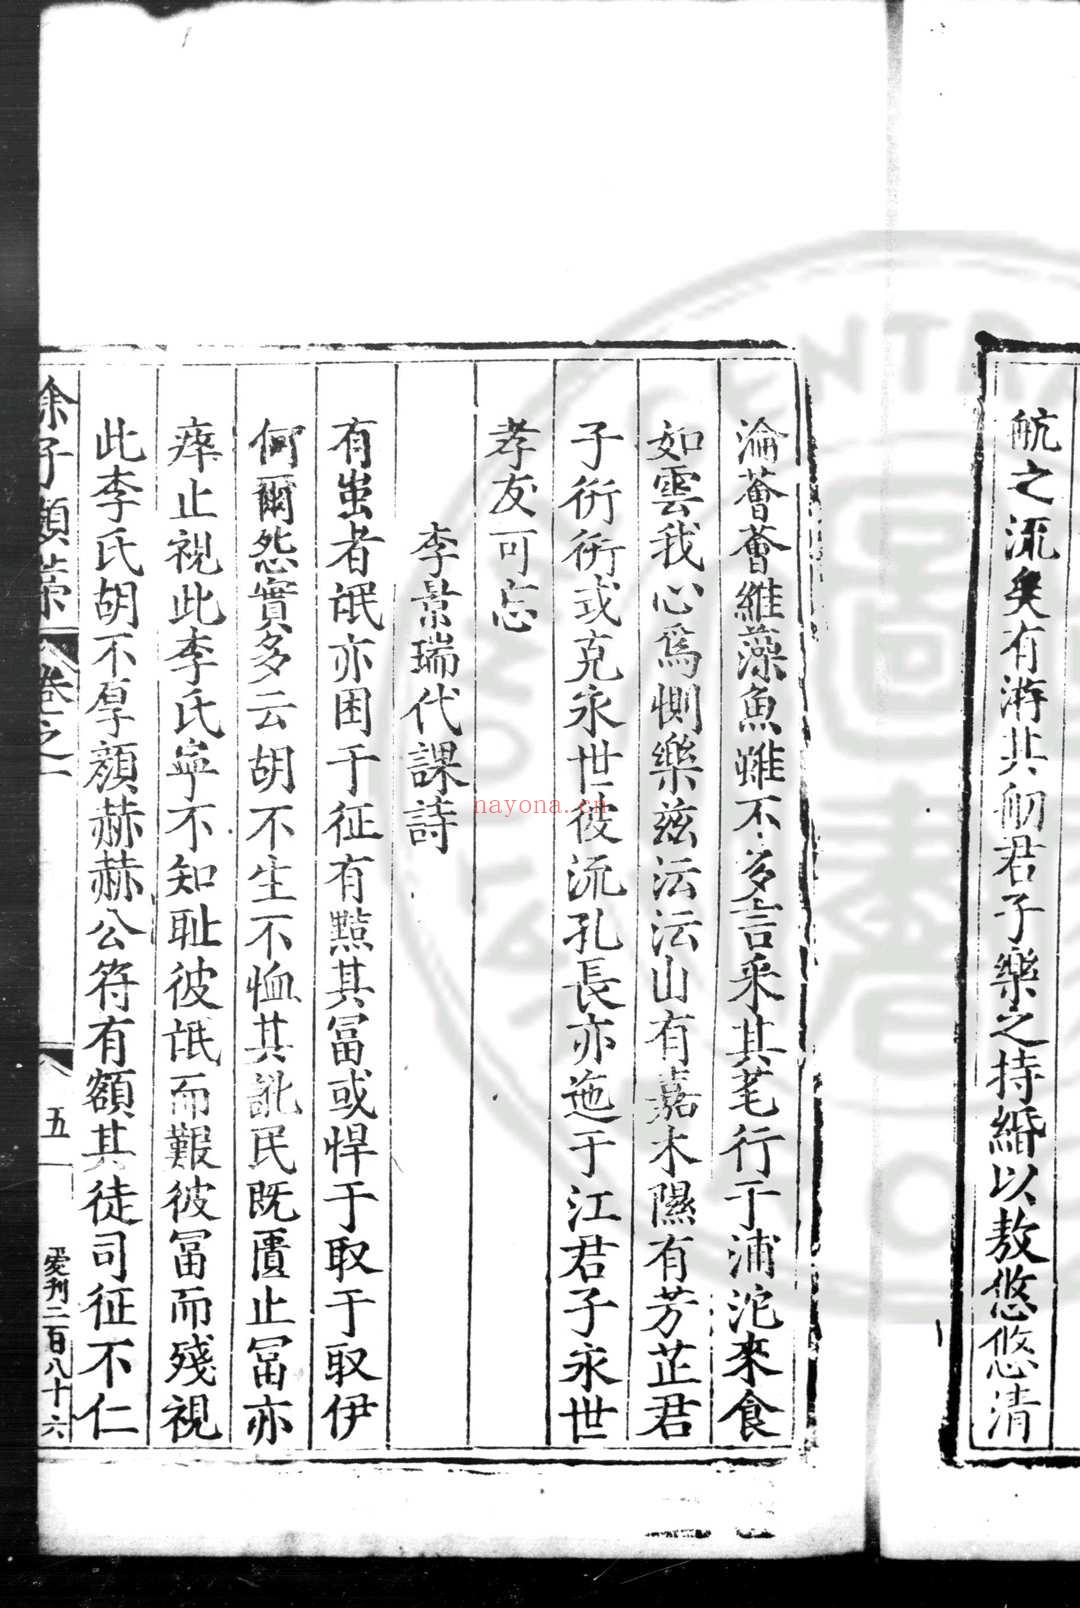 航之流矣有游其舠君子樂之持緡以敖悠悠清
淪薈薈維藻魚雖不多言采其芼行于浦沱來食
如雲我心爲惻樂兹沄沄山有嘉木隰有芳芷君
子衎衎或克永世彼流孔長亦迤于江君子永世
孝友可忘
李景瑞代課詩
有蚩者氓亦困于征有黠其冨或悍于取于取伊
何爾怨實多云胡不生不恤其訛民既匱止冨亦
瘁止視此李氏寧不知耻彼氓而艱彼冨而殘視
此李氏胡不厚顔赫赫公符有額其徒司征不仁
徐子類藁 卷之一 五
爱刊二百八十六
hayona.cn